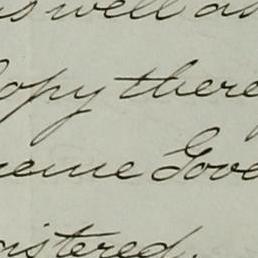 as well as
Copy there
reme Gove
gistered.